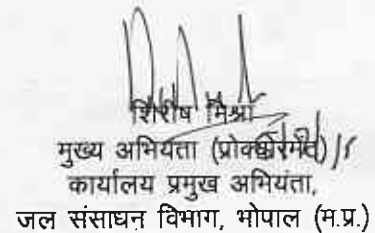 शिरीष मिश्रा
मुख्य अभियंता (प्रोक्योरमेंट)
कार्यालय प्रमुख अभियंता,
जल संसाधन विभाग, भोपाल (म.प्र.)